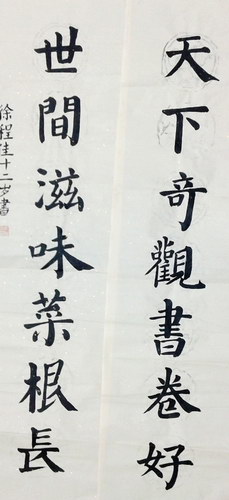 天下奇觀書卷好
世間滋味菜根長
徐程佳十二岁書